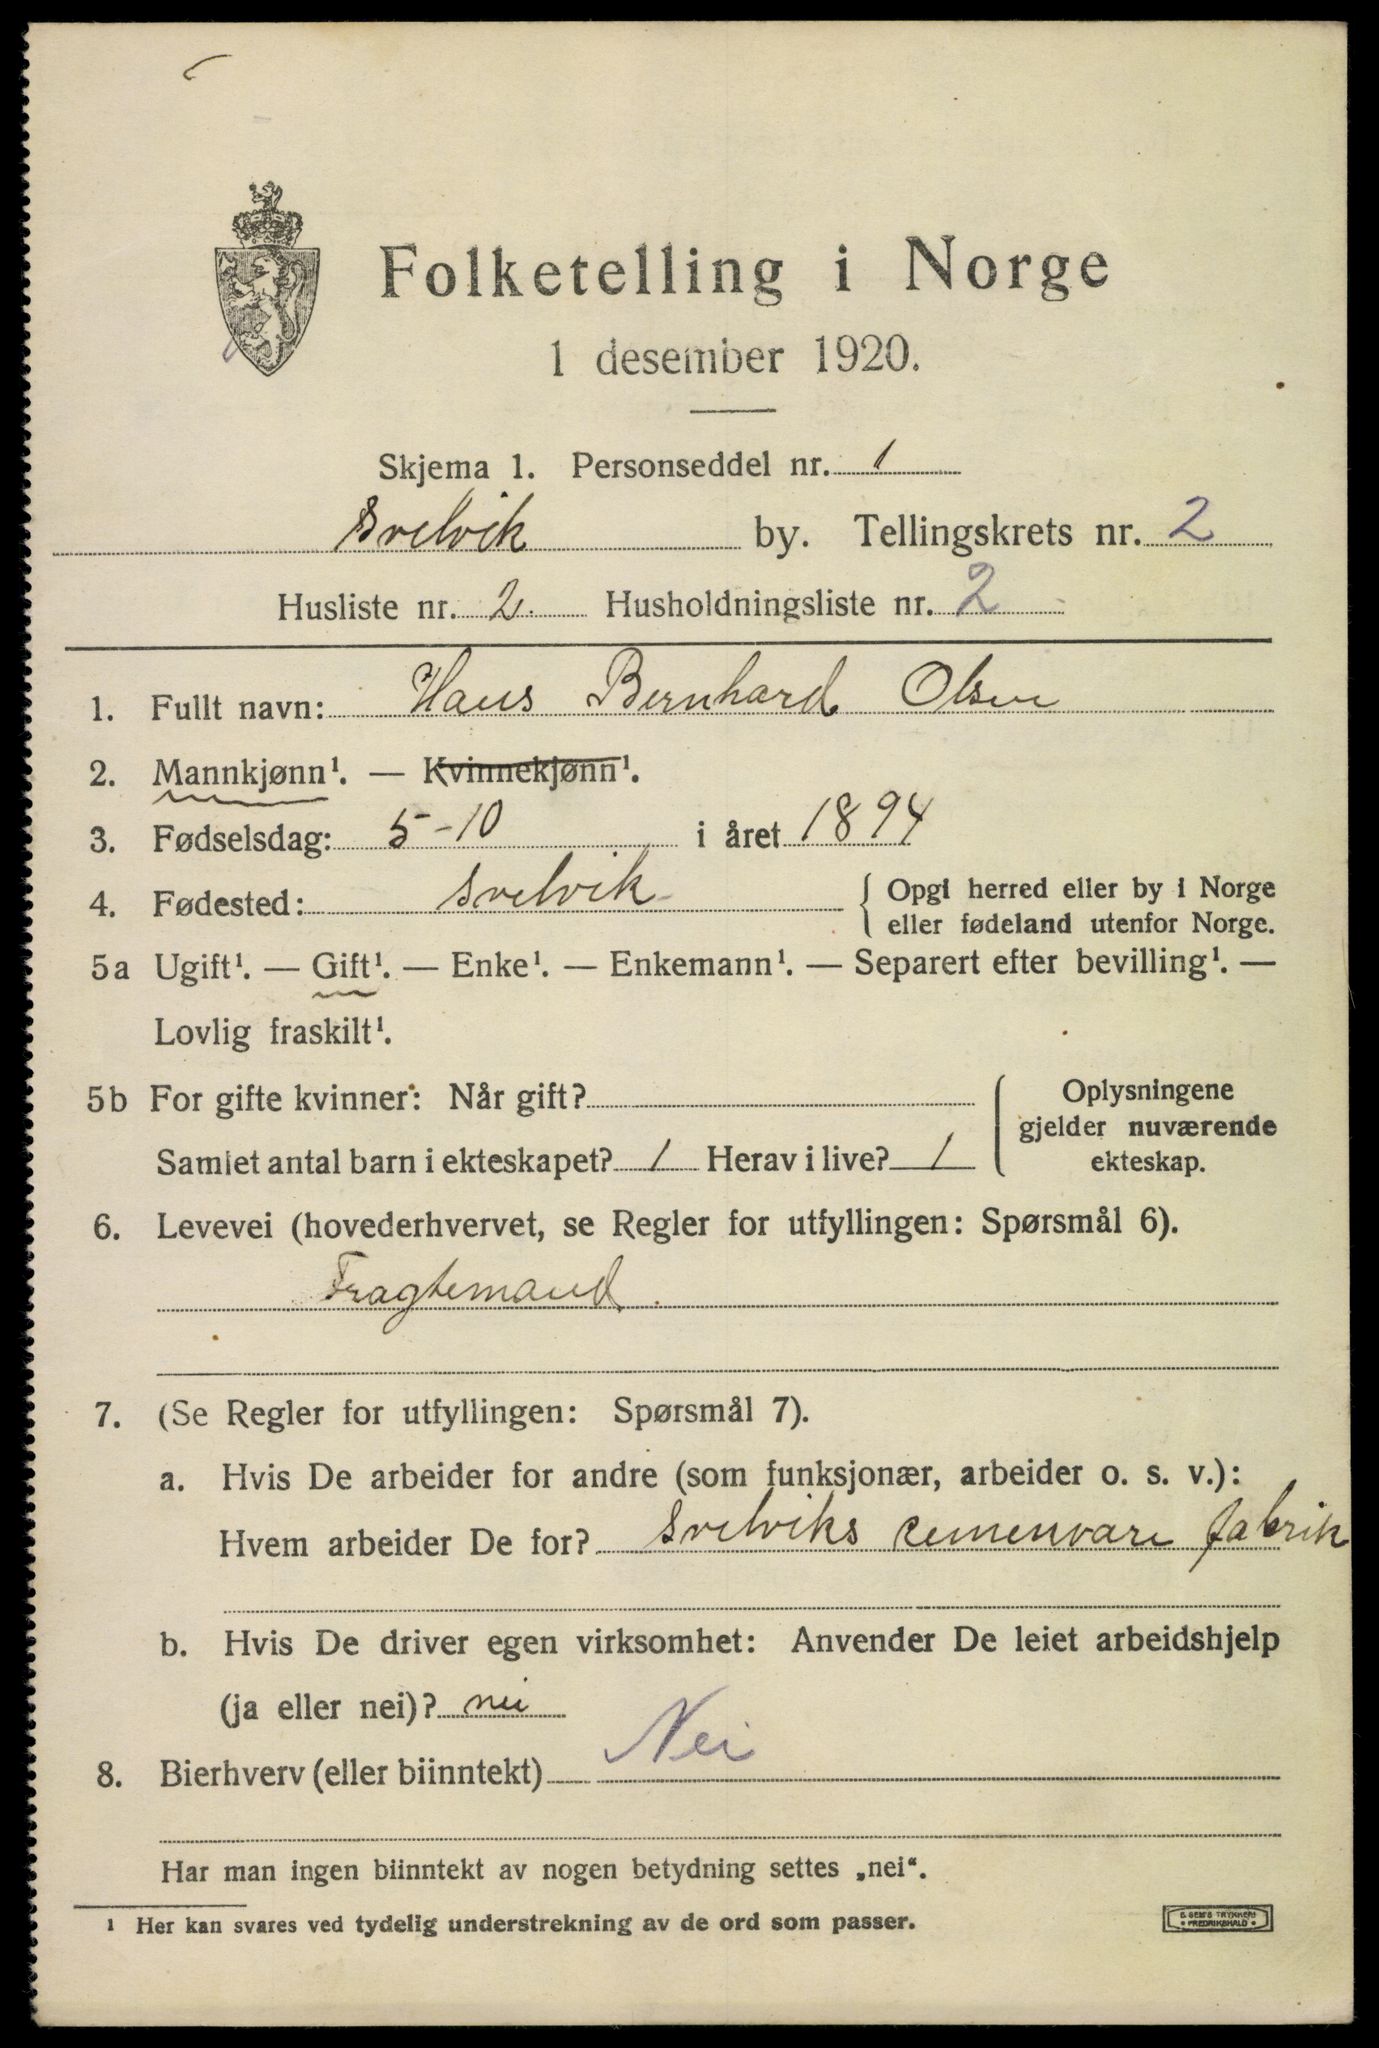 Folketelling i Norge
1 desember 1920.
Skjema 1. Personseddel nr. 1
Svelvik by. Tellingskrets nr. 2
Husliste nr. 2. Husholdningsliste nr. 2
1. Fullt navn: Hans Bernhard Olsen
2. Mannkjønn¹. — Kvinnekjønn¹.
3. Fødselsdag: 5-10 i året 1894
4. Fødested: Svelvik { Opgi herred eller by i Norge
eller fødeland utenfor Norge.
5a Ugift¹. — Gift¹. — Enke¹. — Enkemann¹. — Separert efter bevilling¹. —
Lovlig fraskilt¹.
5b For gifte kvinner: Når gift? Oplysningene
gjelder nuværende
Samlet antal barn i ekteskapet? 1 Herav i live? 1 ekteskap.
6. Levevei (hovederhvervet, se Regler for utfyllingen: Spørsmål 6).
Fragtemand.
7. (Se Regler for utfyllingen: Spørsmål 7).
a. Hvis De arbeider for andre (som funksjonær, arbeider o. s. v.):
Hvem arbeider De for? Svelviks cemenvare fabrik
b. Hvis De driver egen virksomhet: Anvender De leiet arbeidshjelp
(ja eller nei)? nei
8. Bierhverv (eller biinntekt) Nei
Har man ingen biinntekt av nogen betydning settes „nei“.
¹ Her kan svares ved tydelig understrekning av de ord som passer.
E. SEM'S TRYKKERI
• FREDRIKSHALD •